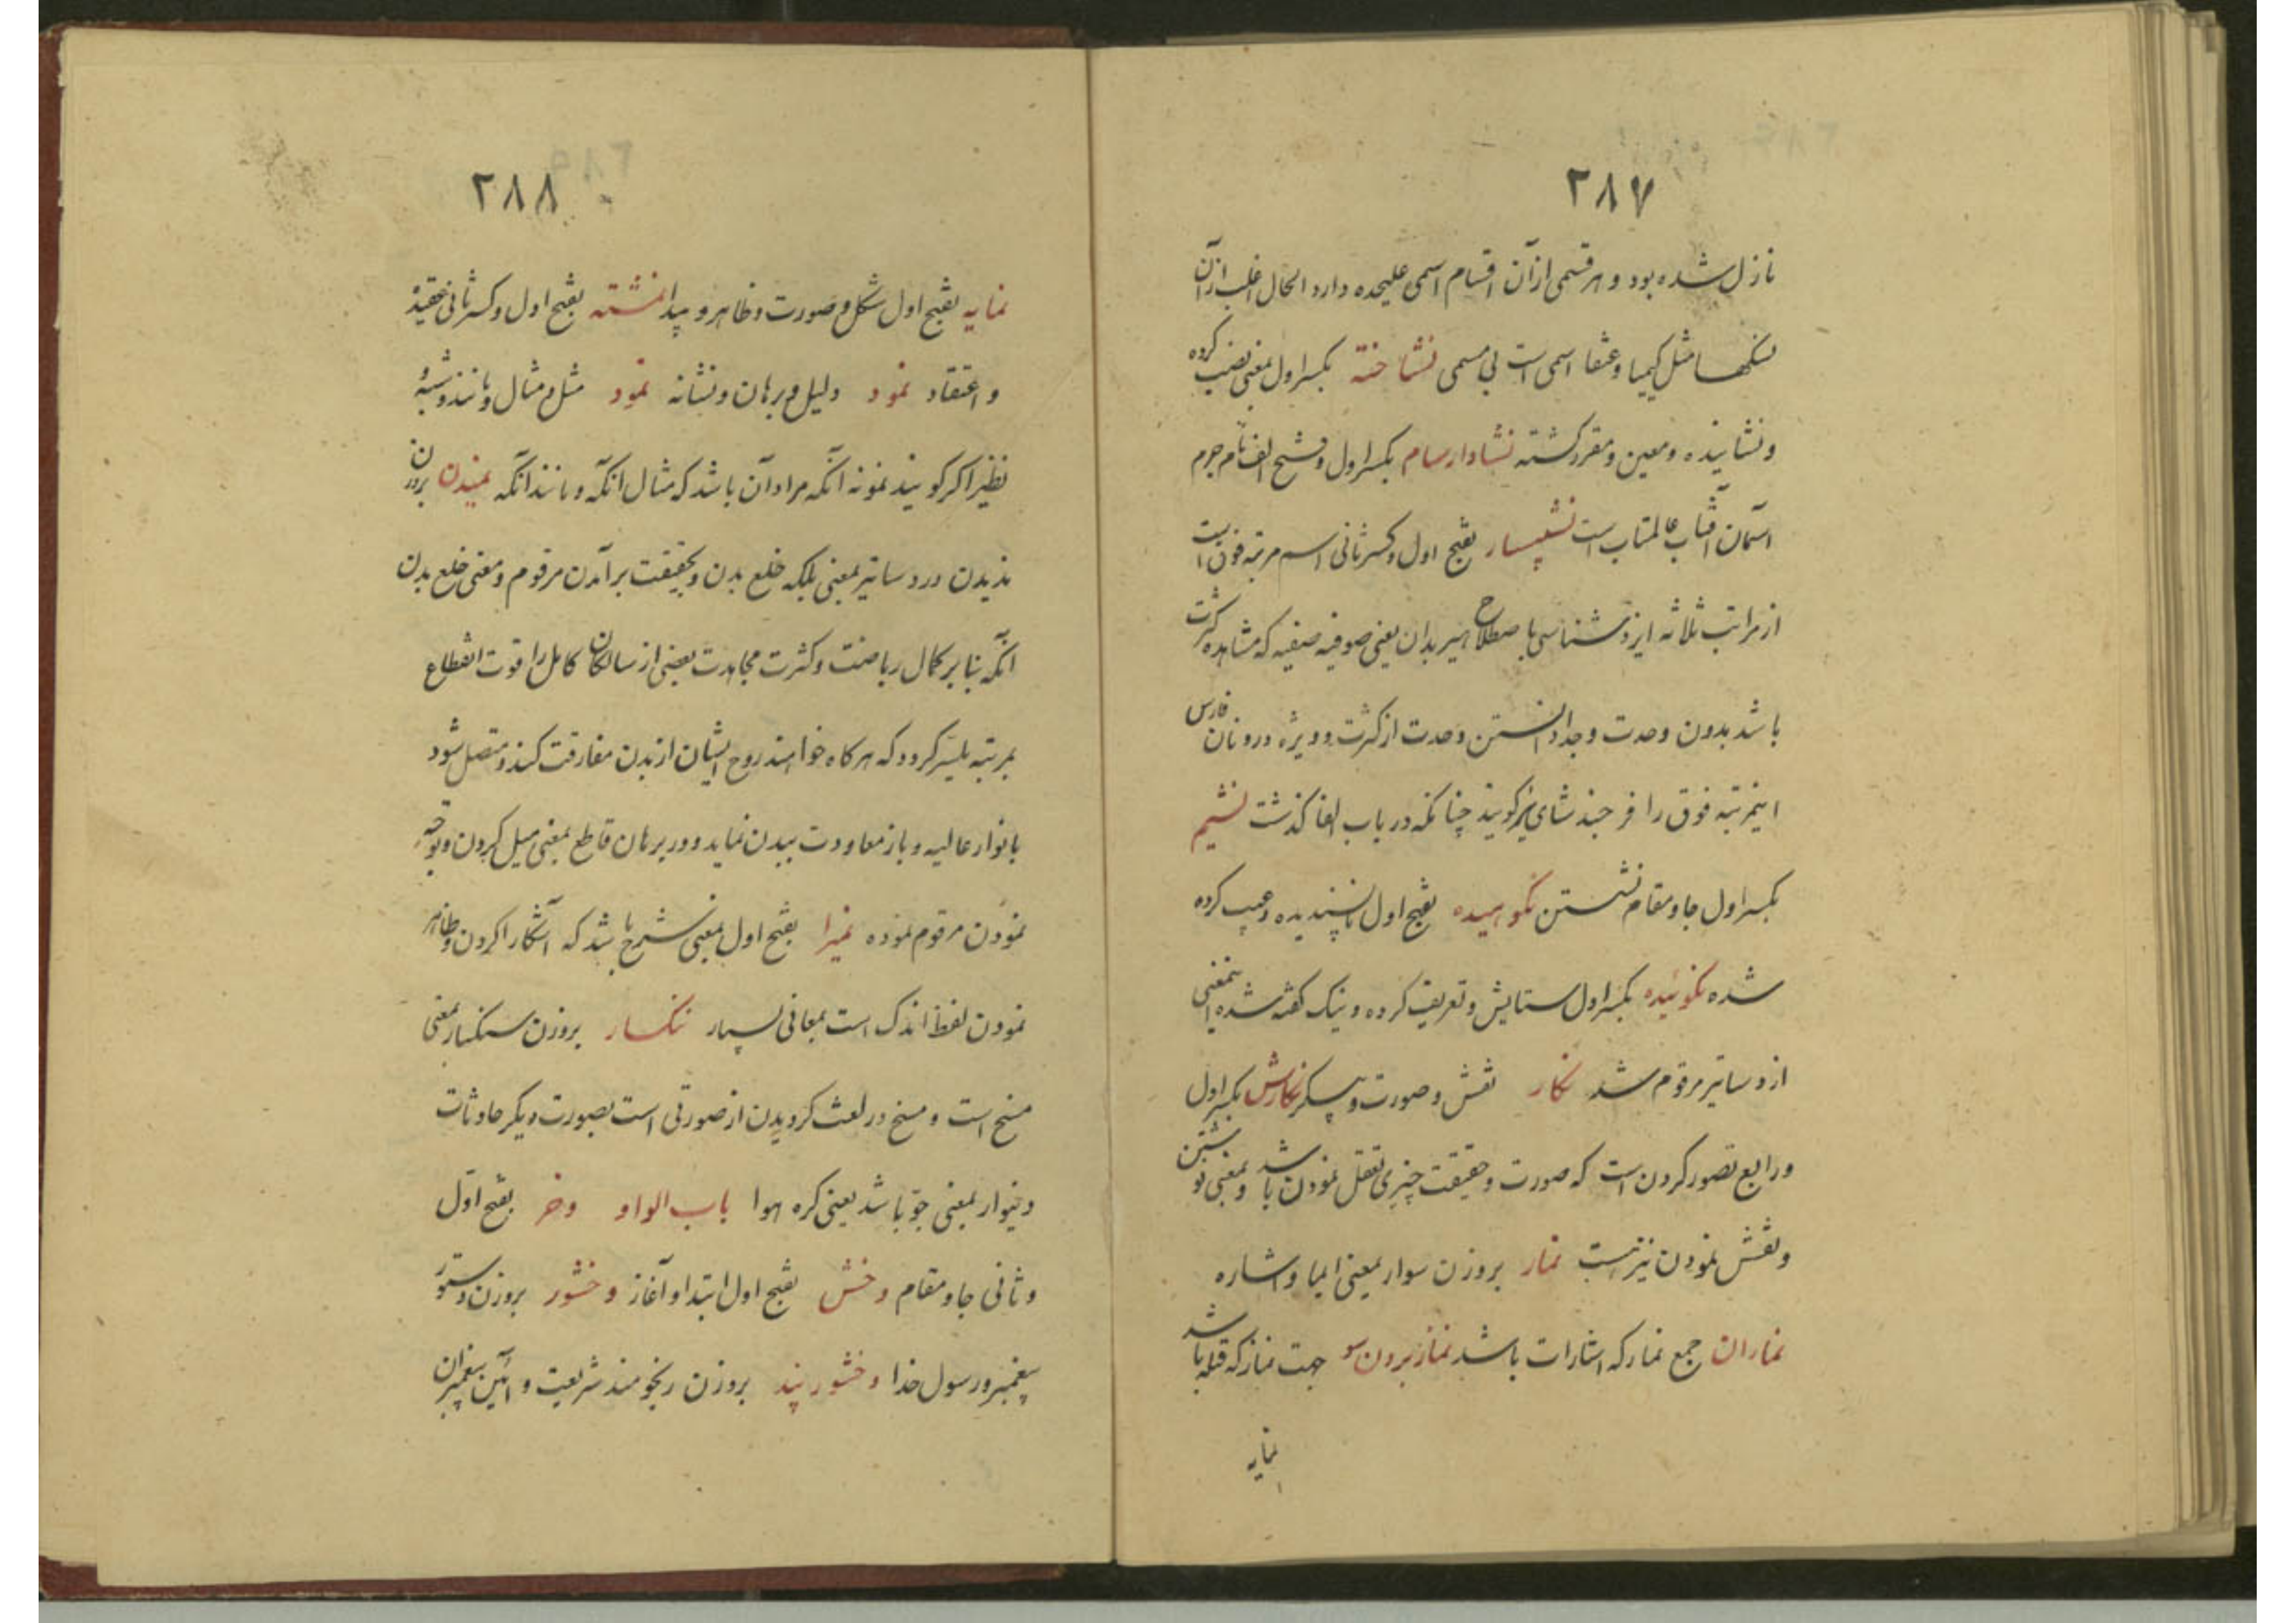 ۲۸۷
نازل شده بود و هر قسمی از آن اقسام اسمی علیحده دارد الحال اغلب از آن
سنگها مثل کیمیا و عنقا اسمی است بی مسمی نشاخته بکسر اول بمعنی نصب کرده
و نشانیده و معین و مقرر گشته نشادارسام بکسر اول و فتح الف نام جرم
آسمان آفتاب عالمتاب است نشیپسار بفتح اول و کسر ثانی اسم مرتبه فوق است
از مراتب ثلاثه ایزد شناسی باصطلاح هیربدان یعنی صوفیه صفیه که مشاهده کثرت
باشد بدون وحدت وجدا دانستن وحدت از کثرت و ویژه درونان فارس
اینمرتبه فوق را فرجند شای نیز گویند چنانکه در باب الفا گذشت نشیم
بکسر اول جا و مقام نشستن نکوهیده بفتح اول ناپسندیده و عیب کرده
شده نکوئیده بکسر اول ستایش و تعریف کرده و نیک گفته شده اینمعنی
از دساتیر مرقوم شد نگار نقش و صورت و پیکر نگارش بکسر اول
و رابع تصور کردن است که صورت و حقیقت چیزی تعقل نمودن باشد و بمعنی نوشتن
و نقش نمودن نیز هست نمار بروزن سوار بمعنی ایما و اشاره
نماران جمع نمار که اشارات باشد نماز بردن سو جهت نماز که قبله باشد
نمایه
۲۸۸
نمایه بفتح اول شکل و صورت و ظاهر و پیدا نمشته بفتح اول و کسر ثانی عقیده
و اعتقاد نمود دلیل و برهان و نشانه نمود مثل و مثال و مانند و شبه و
نظیر اگر گویند نمونه آنکه مراد آن باشد که مثال آنکه و مانند آنکه نمیدن بروزن
ندیدن در دساتیر بمعنی ملکه خلع بدن و بحقیقت برآمدن مرقوم و معنی خلع بدن
آنکه بنا بر کمال ریاضت و کثرت مجاهدت بعضی از سالکان کامل را قوت انقطاع
بمرتبه میسر گردد که هرگاه خواهند روح ایشان از بدن مفارقت کند و متصل شود
بانوار عالیه و باز معاودت ببدن نماید و در برهان قاطع بمعنی میل کردن و توجه
نمودن مرقوم نموده نمیرا بفتح اول بمعنی شرح باشد که آشکارا کردن و ظاهر
نمودن لفظ اندک است بمعانی بسیار ننگسار بروزن سنگسار بمعنی
مسخ است و مسخ در لغت گردیدن از صورتی است بصورت دیگر حادثات
و نیوار بمعنی جو باشد یعنی کره هوا باب الواو وخر بفتح اول
و ثانی جا و مقام وخش بفتح اول ابتدا و آغاز وخشور بروزن دستور
پیغمبر و رسول خدا وخشور پند بروزن رنجو مند شریعت و آئین پیغمبران